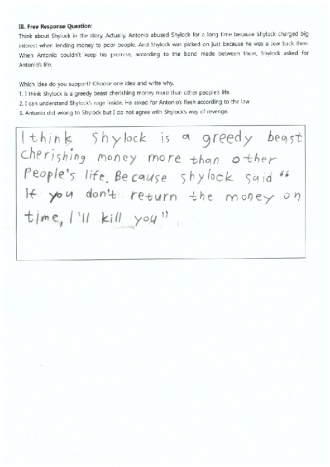 III. Free Response Question:
Think about Shylock in the story. Actually, Antonio abused Shylock for a long time because Shylock charged big
interest when lending money to poor people. And Shylock was picked on just because he was a Jew back then.
When Antonio couldn't keep his promise, according to the bond made between them, Shylock asked for
Antonio's life.
Which idea do you support? Choose one idea and write why.
1. I think Shylock is a greedy beast cherishing money more than other people's life.
2. I can understand Shylock's rage inside. He asked for Antonio's flesh according to the law.
3. Antonio did wrong to Shylock but I do not agree with Shylock's way of revenge.
I think Shylock is a greedy beast
cherishing money more than other
people's life. Because shylock said "
If you don't return the money on
time, I'll kill you"